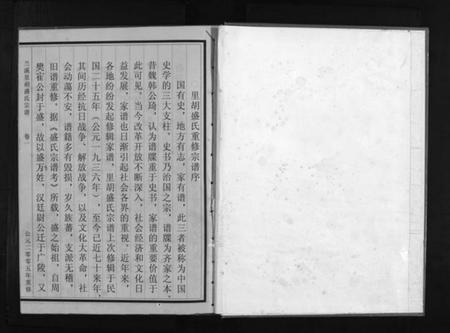 里胡盛氏重修宗谱序
国有史，地方有志，家有谱，此三者被称为中国
史学的三大支柱，史书乃治国之宗，谱牒为齐家之本，
昔魏韩公琦，认为谱牒重于史书，家谱的重要价值于
此可见。当今改革开放不断深入，社会经济和文化日
益发展，家谱也日渐引起社会各界的重视，近年来，
各地纷纷发起修辑家谱，里胡盛氏宗谱上次修辑于民
国二十五年（公元一九三六年），至今已近七十来年，
其间历经抗日战争、解放战争，以及文化大革命，社
会动荡不安，谱籍多有毁损，岁久族蕃，支派无稽，
旧谱重修。据《盛氏宗谱考》所载，盛之始祖，自周
樊宦公封于盛，故以盛为姓，汉廷尉公迁于广陵，又
兰溪里胡盛氏宗谱 卷一
公元二零零五年重修